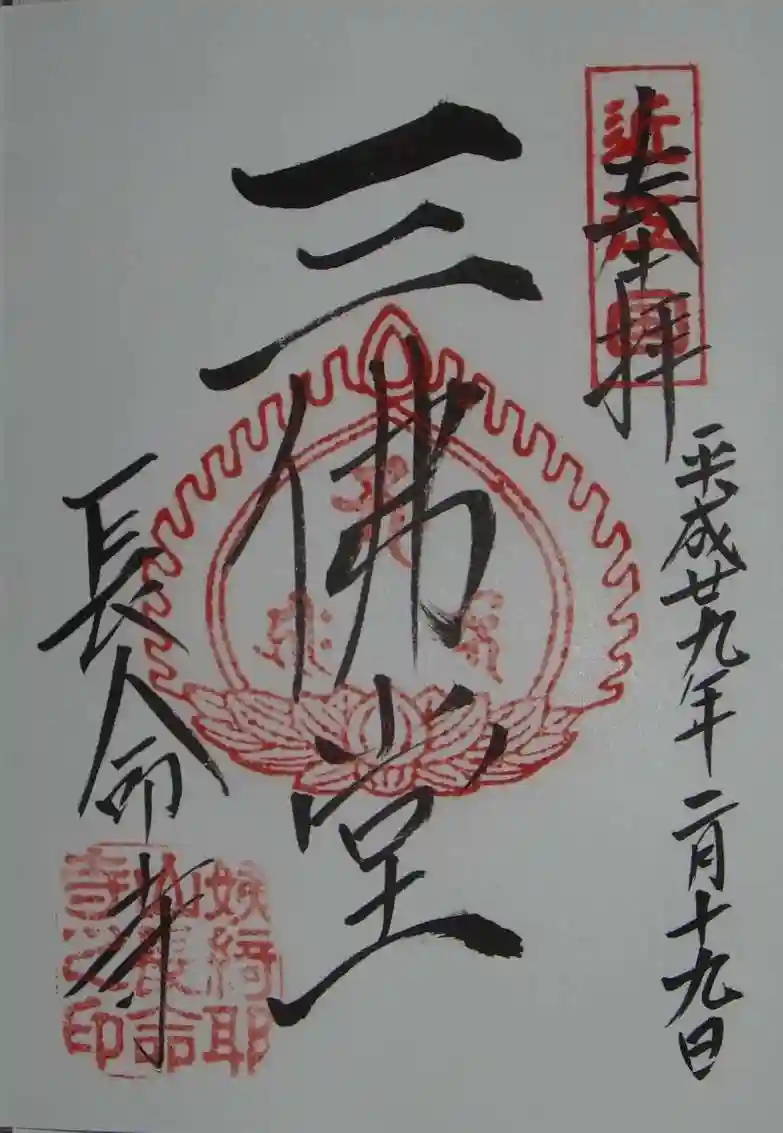 奉拝
近江国
平成廿九年二月十九日
三佛堂
長命寺
姨綺耶
山長命
寺之印